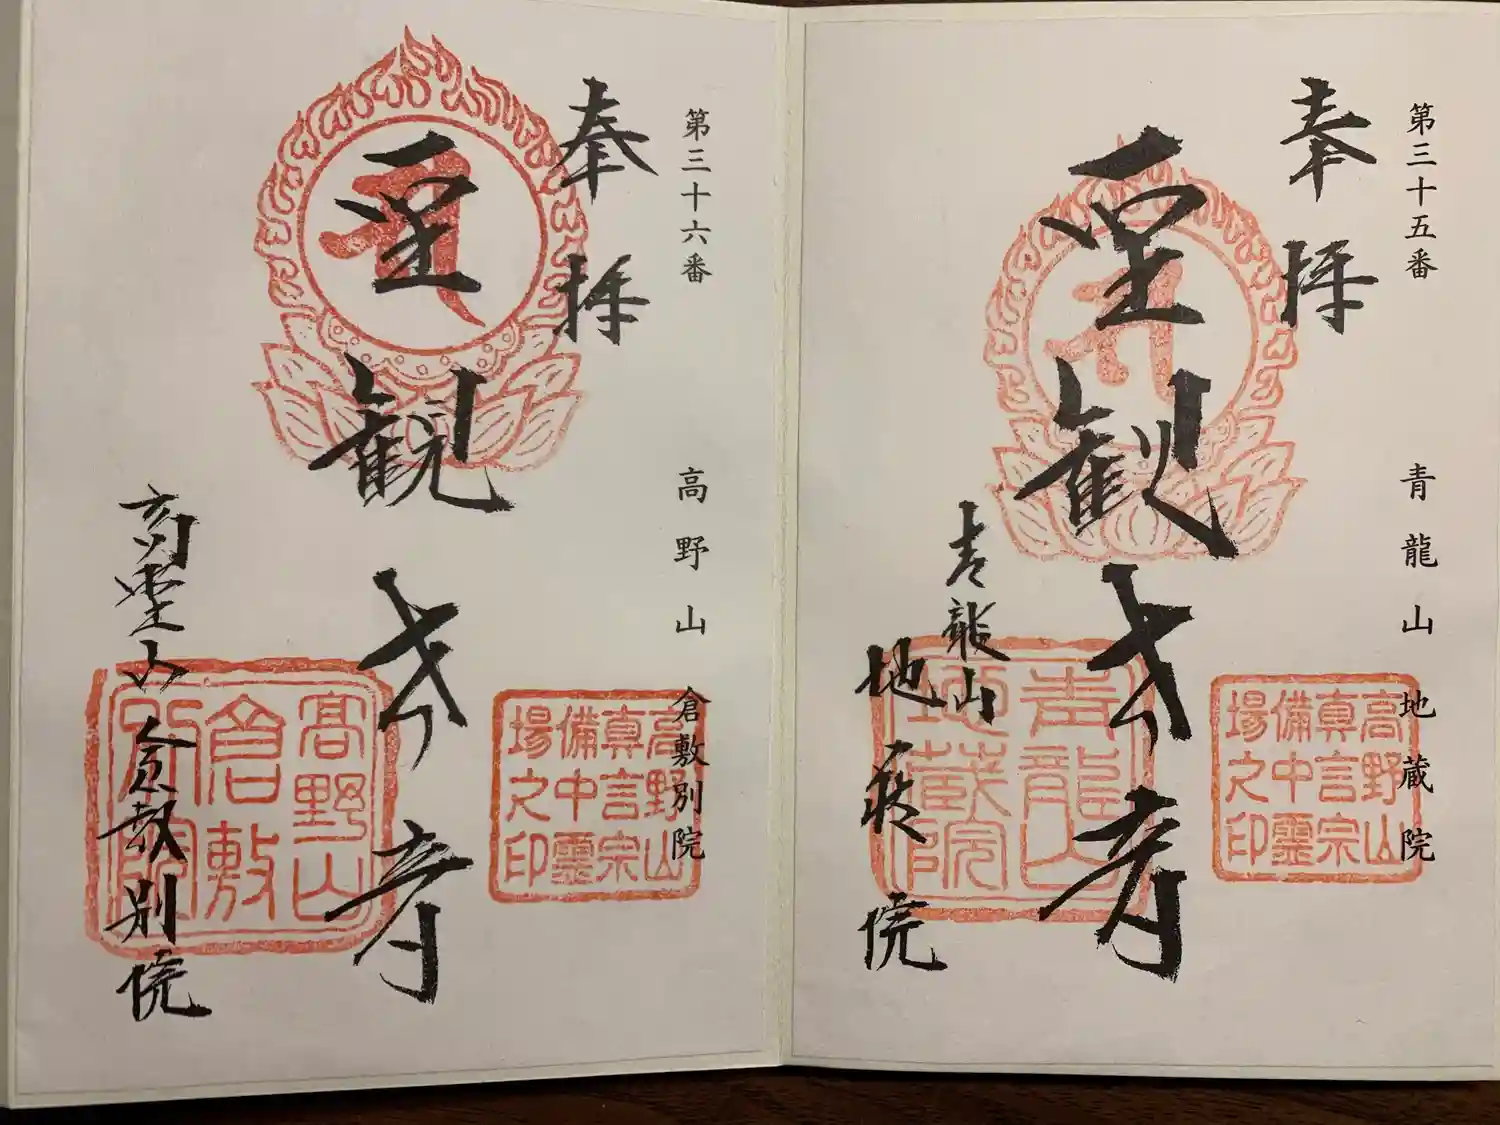 第三十五番 青龍山 地蔵院
奉拝
高野山
真言宗
備中霊
場之印
聖観世音
青龍山
地蔵院
青龍山 地蔵院
第三十六番 高野山 倉敷別院
奉拝
高野山
真言宗
備中霊
場之印
聖観世音
高野山
倉敷
別院
高野山 倉敷別院